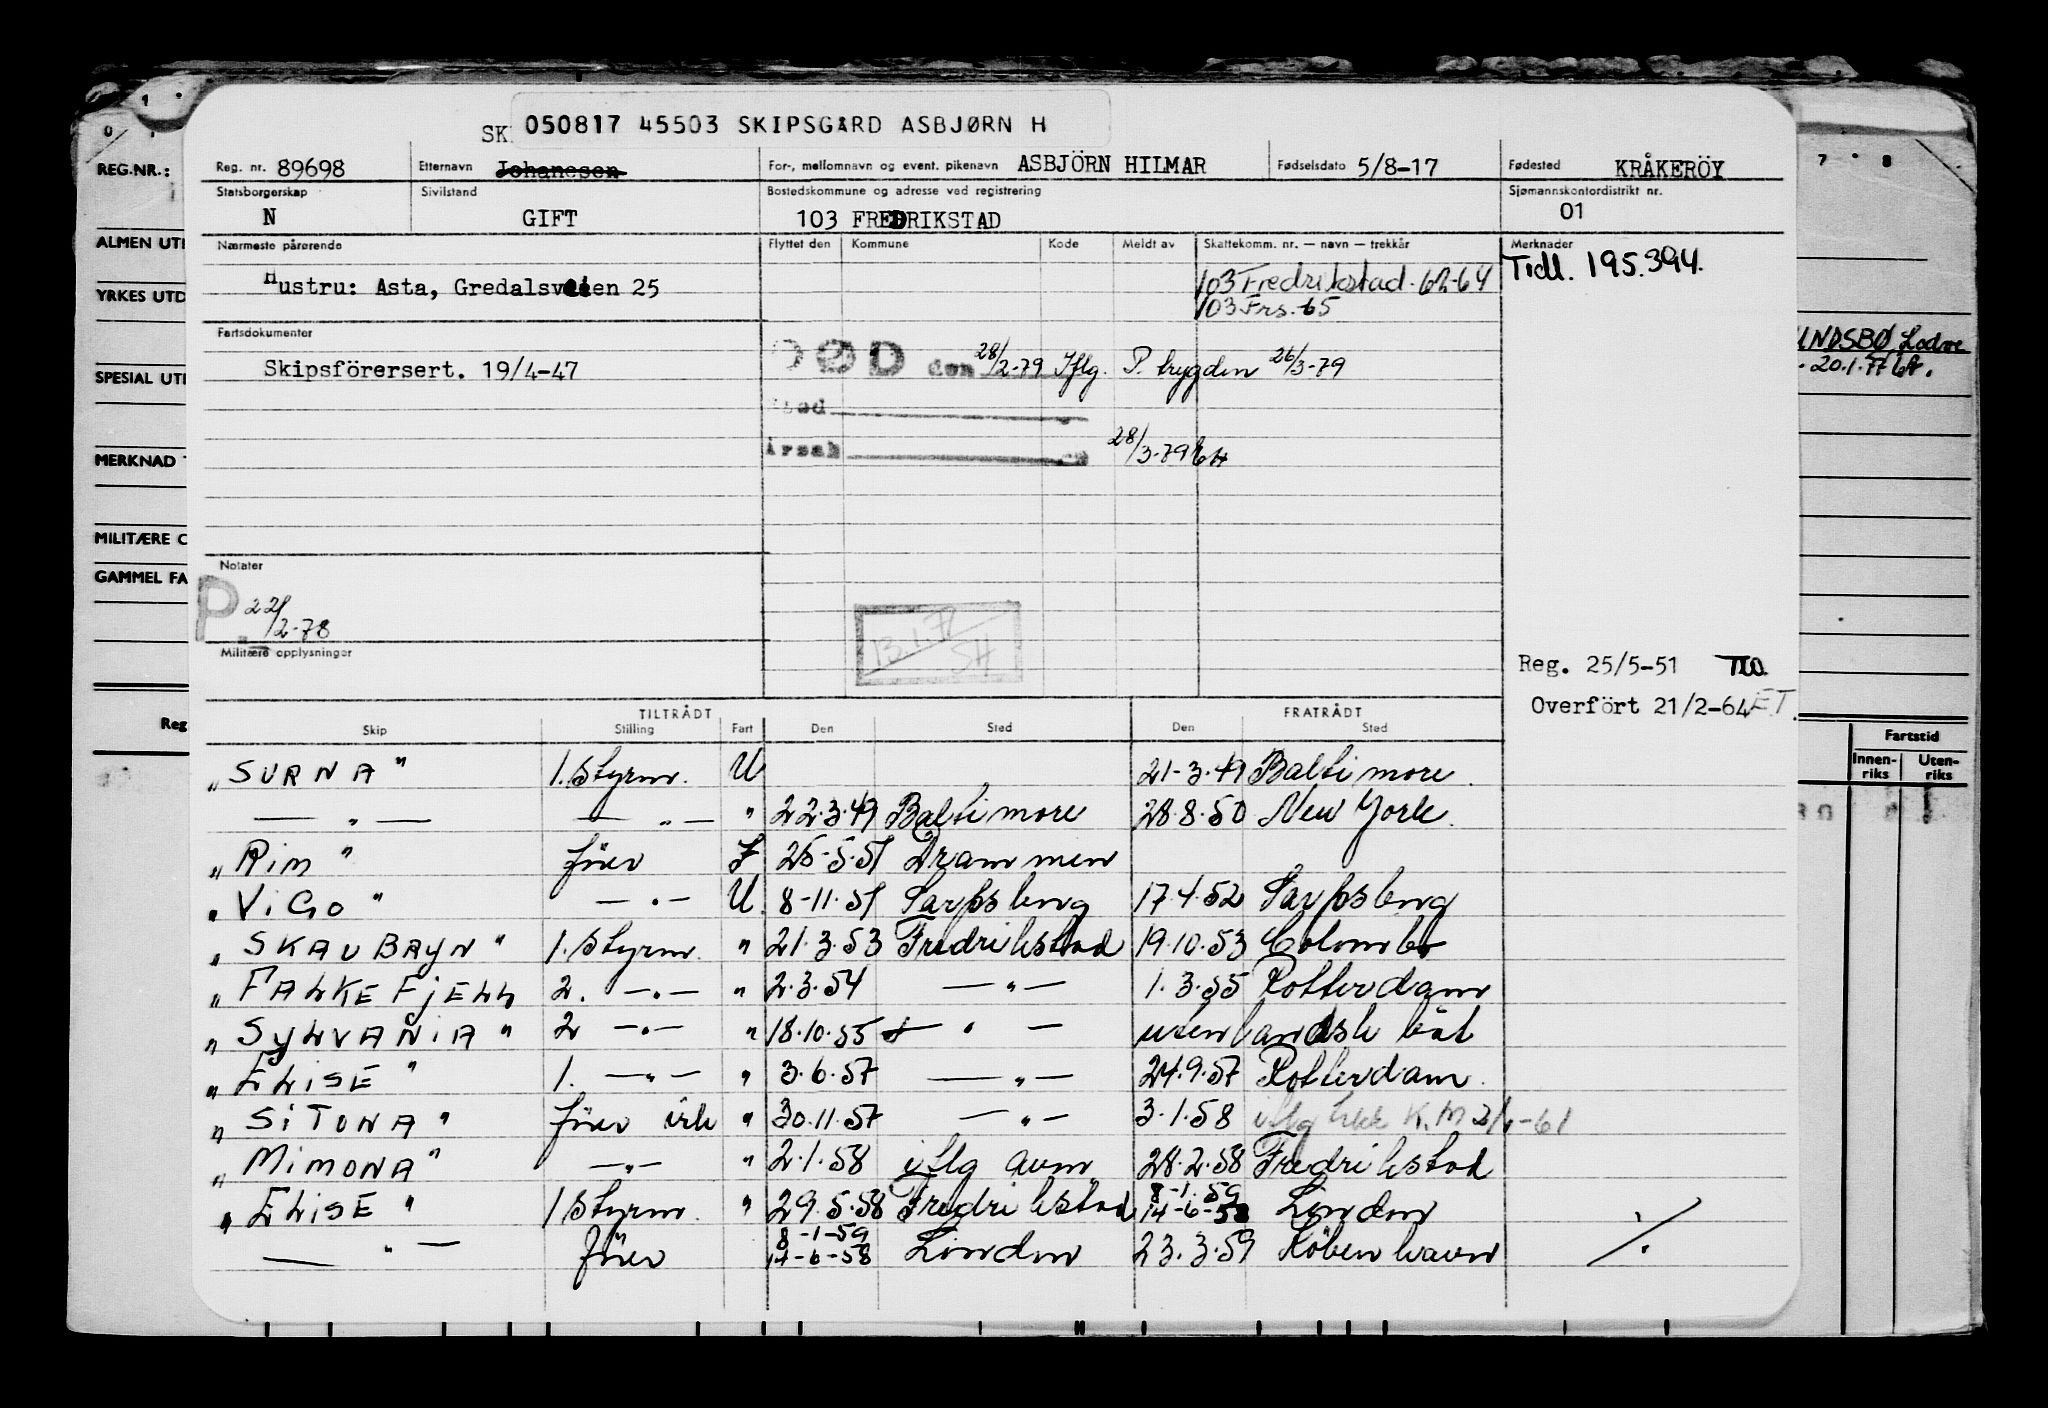 050817 45503 SKIPSGÅRD ASBJØRN H
SK
REG.NR.:
Reg. nr. 89698 Etternavn Johanesen For-, mellomnavn og event. pikenavn ASBJÖRN HILMAR Fødselsdato 5/8-17 Fødested KRÅKERÖY
Statsborgerskap N Sivilstand GIFT Bostedskommune og adresse ved registrering 103 FREDRIKSTAD Sjømannskontordistrikt nr. 01
ALMEN UTE
Nærmeste pårørende Flyttet den Kommune Kode Meldt av Skattekomm. nr. — navn — trekkår Merknader
Tidl. 195.394.
Hustru: Asta, Gredalsveien 25 103 Fredrikstad. 62-64
103 Frs. 65
YRKES UTD
Fartsdokumenter
Skipsförersert. 19/4-47
DØD den 28/2-79 Iflg. P. trygden 26/3-79
UNDSBØ Lodve
20.1.77
SPESIAL UTE
Sted
Årsak 28/3-79
MERKNAD
MILITÆRE
GAMMEL FA
Notater
P. 22/2-78
13.1.77
SH
Militære opplysninger
Reg. 25/5-51
Overfört 21/2-64 E.T.
Reg
TILTRÅDT FRATRÅDT
Skip Stilling Fart Den Sted Den Sted
Fartstid
Innen-riks Uten-riks
"SURNA" 1. Styrm. U 21-3.49 Baltimore.
— " — — " — " 22.3.49 Baltimore 28.8.50 New York.
"Rim" förer 25-5-51 Drammen
"ViGo" — " — U. 8-11.51 Sarpsborg 17.4.52 Sarpsborg
"SKAUBRYN" 1. Styrm. " 21.3.53 Fredrikstad 19.10.53 Colombo
"FALKEFjELL 2. — " — " 2.3.54 — " — 1.3.55 Rotterdam
"SYLVANiA" 2 — " — " 18.10.55 — " — utenlandsk båt
"ELiSE" 1. — " — " 3.6.57 — " — 24.9.57 Rotterdam.
"SiTONA" förer " 30.11.57 — " — 3.1.58 iflg K.M -61
"MiMONA" — " — " 2.1.58 iflg 28.2.58 Fredrikstad
"ELiSE" 1 Styrm. " 29.5.58 Fredrikstad 8-1-59 14-6-58 London
— " — förer 8-1-59 14-6-58 London 23.3.59 Köbenhavn
./.